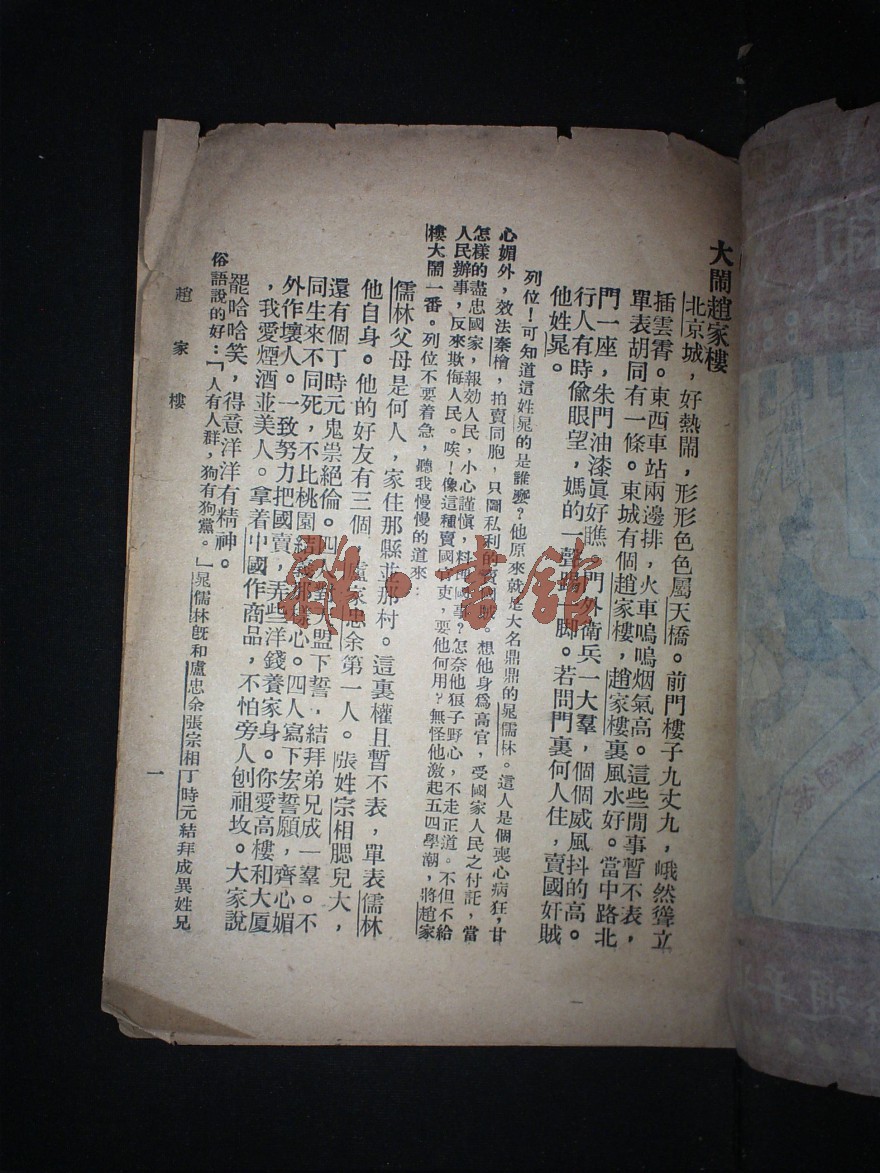 大鬧趙家樓
北京城，好熱鬧，形形色色屬天橋。前門樓子九丈九，峨然聳立
插雲霄。東西車站兩邊排，火車嗚嗚烟氣高。這些閒事暫不表，
單表胡同有一條。東城有個趙家樓，趙家樓裏風水好。當中路北
門一座，朱門油漆眞好瞧，門外衛兵一大羣，個個威風抖的高。
行人有時偷眼望，媽的一聲踢一脚。若問門裏何人住，賣國奸賊
他姓晁。
列位！可知道這姓晁的是誰麽？他原來就是大名鼎鼎的晁儒林。這人是個喪心病狂，甘
心媚外，效法秦檜，拍賣同胞，只圖私利的賣國賊。想他身爲高官，受國家人民之付託，當
怎樣的盡忠國家，報効人民，小心謹愼，料理國事？怎奈他狠子野心，不走正道。不但不給
人民辦事，反來欺侮人民。唉！像這種賣國 吏，要他何用？無怪他激起五四學潮，將趙家
樓大鬧一番。列位不要着急，聽我慢慢的道來：
儒林父母是何人，家住那縣並那村。這裏權且暫不表，單表儒林
他自身。他的好友有三個，盧家忠余第一人。張姓宗相腮兒大，
還有個丁時元鬼祟絕倫。四人對天盟下誓，結拜弟兄成一羣。不
同生來不同死，不比桃園結義那樣心。四人寫下宏誓願，齊心媚
外作壞人。一致努力把國賣，弄些洋錢養家身。你愛高樓和大厦
，我愛煙酒並美人。拿着中國作商品，不怕旁人刨祖坟。大家說
罷哈哈笑，得意洋洋有精神。
俗語說的好：「人有人群，狗有狗黨。」晁儒林旣和盧忠余張宗相丁時元結拜成異姓兄
趙家樓
一
雜·書館